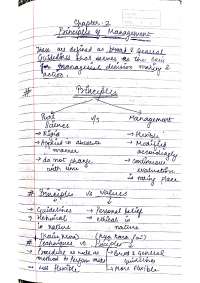 Chapter-2
Principles of Management
These are defined as broad & general
Guidelines that serves as the
for managerial decision making &
action.
# Principles
Pure Science v/s Management
→ Rigid → Flexible
→ Applied in absolute manner → Modified accordingly
→ do not change with time → continuous evaluation is taking place
# Principles vs values
→ Guidelines → Personal belief
→ Technical in nature → ethical in nature
# Techniques vs Principles
→ Procedure → Broad & general guidelines
→ Less flexible → More flexible